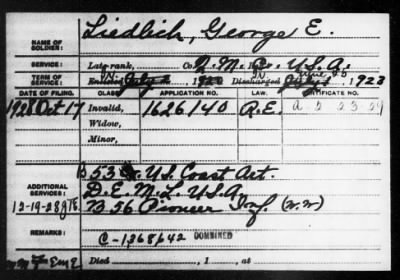 NAME OF SOLDIER: Liedlich, George E.
SERVICE: Late rank, Co. Q. M. C. U.S.A.
TERM OF SERVICE: Enlisted July 2, 1920 Discharged July 1 June 25, 1923
DATE OF FILING. CLASS. APPLICATION NO. LAW. CERTIFICATE NO.
1928 Oct 17 Invalid, 1626140 R.E. a b 23 29
Widow,
Minor,
B 53 U.S. Coast Art.
ADDITIONAL SERVICES: D.E.M.L. U.S.A.
12-19-28 73 56 Pioneer Inf. (W.W)
REMARKS: C-1,268,642 COMBINED
Died , 1 , at